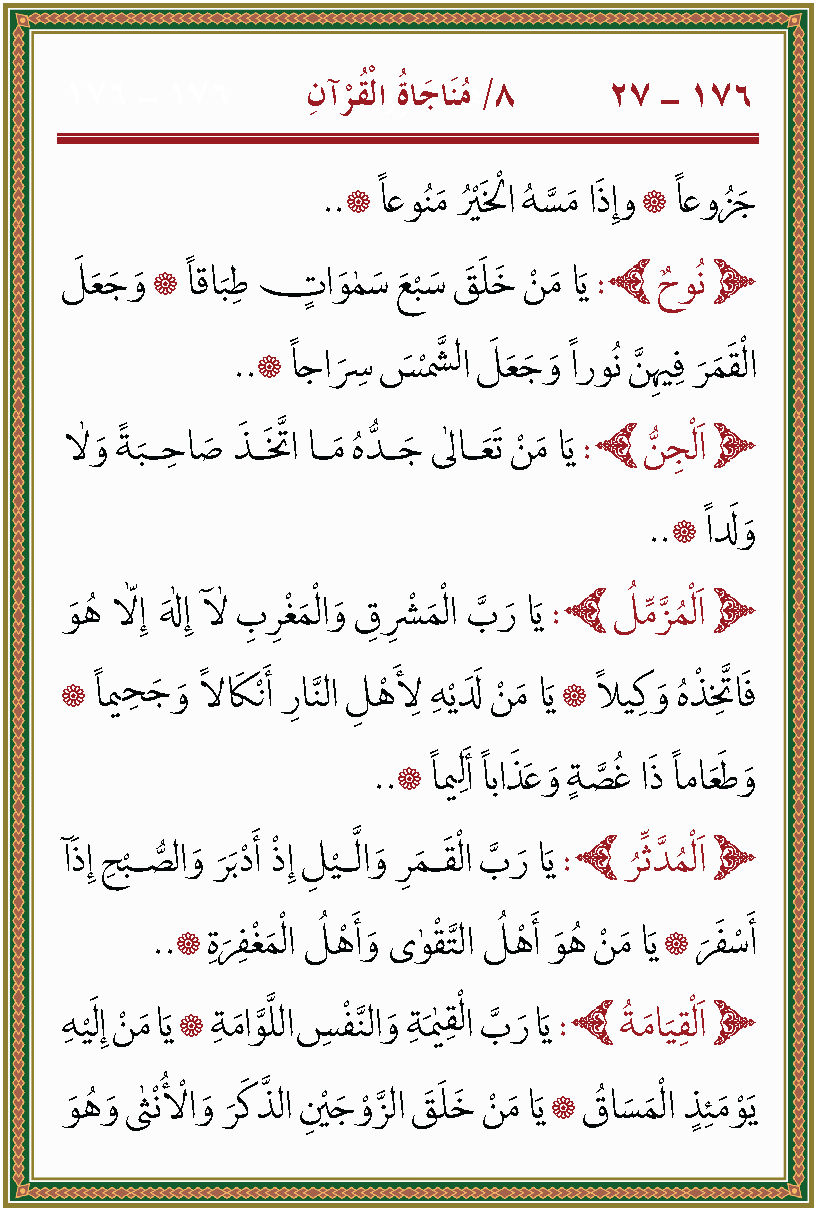 ١٧٦ – ٢٧ ٨/ مُنَاجَاةُ الْقُرْآنِ
جَزُوعاً ۞ وإِذَا مَسَّهُ الْخَيْرُ مَنُوعاً ۞..
﴿ نُوحٌ ﴾: يَا مَنْ خَلَقَ سَبْعَ سَمٰوَاتٍ طِبَاقاً ۞ وَجَعَلَ
الْقَمَرَ فِيهِنَّ نُوراً وَجَعَلَ الشَّمْسَ سِرَاجاً ۞..
﴿ اَلْجِنُّ ﴾: يَا مَنْ تَعَـالىٰ جَـدُّهُ مَـا اتَّخَـذَ صَاحِـبَةً وَلٰا
وَلَداً ۞..
﴿ اَلْمُزَّمِّلُ ﴾: يَا رَبَّ الْمَشْرِقِ وَالْمَغْرِبِ لٰآ إِلٰهَ إِلّٰا هُوَ
فَاتَّخِذْهُ وَكِيلاً ۞ يَا مَنْ لَدَيْهِ لِأَهْلِ النَّارِ أَنْكَالاً وَجَحِيماً ۞
وَطَعَاماً ذَا غُصَّةٍ وَعَذَاباً أَلِيماً ۞..
﴿ اَلْمُدَّثِّرُ ﴾: يَا رَبَّ الْقَـمَـرِ وَالَّـيْـلِ إِذْ أَدْبَرَ وَالصُّـبْـحِ إِذَآ
أَسْفَرَ ۞ يَا مَنْ هُوَ أَهْلُ التَّقْوٰى وَأَهْلُ الْمَغْفِرَةِ ۞..
﴿ اَلْقِيَامَةُ ﴾: يَا رَبَّ الْقِيٰمَةِ وَالنَّفْسِ اللَّوَّامَةِ ۞ يَا مَنْ إِلَيْهِ
يَوْمَئِذٍ الْمَسَاقُ ۞ يَا مَنْ خَلَقَ الزَّوْجَيْنِ الذَّكَرَ وَالْأُنْثىٰ وَهُوَ